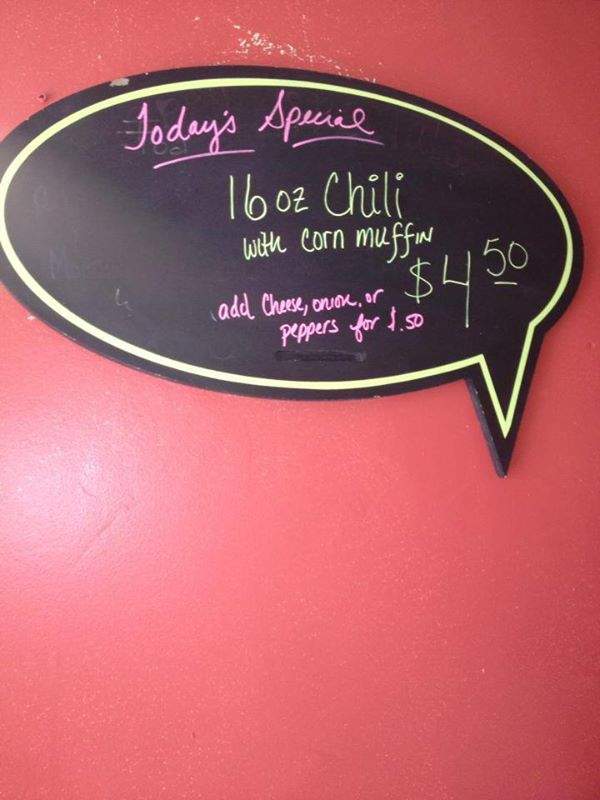 Today's Special
16 oz Chili
with corn muffin
$4 50
add Cheese, onion, or
peppers for $.50